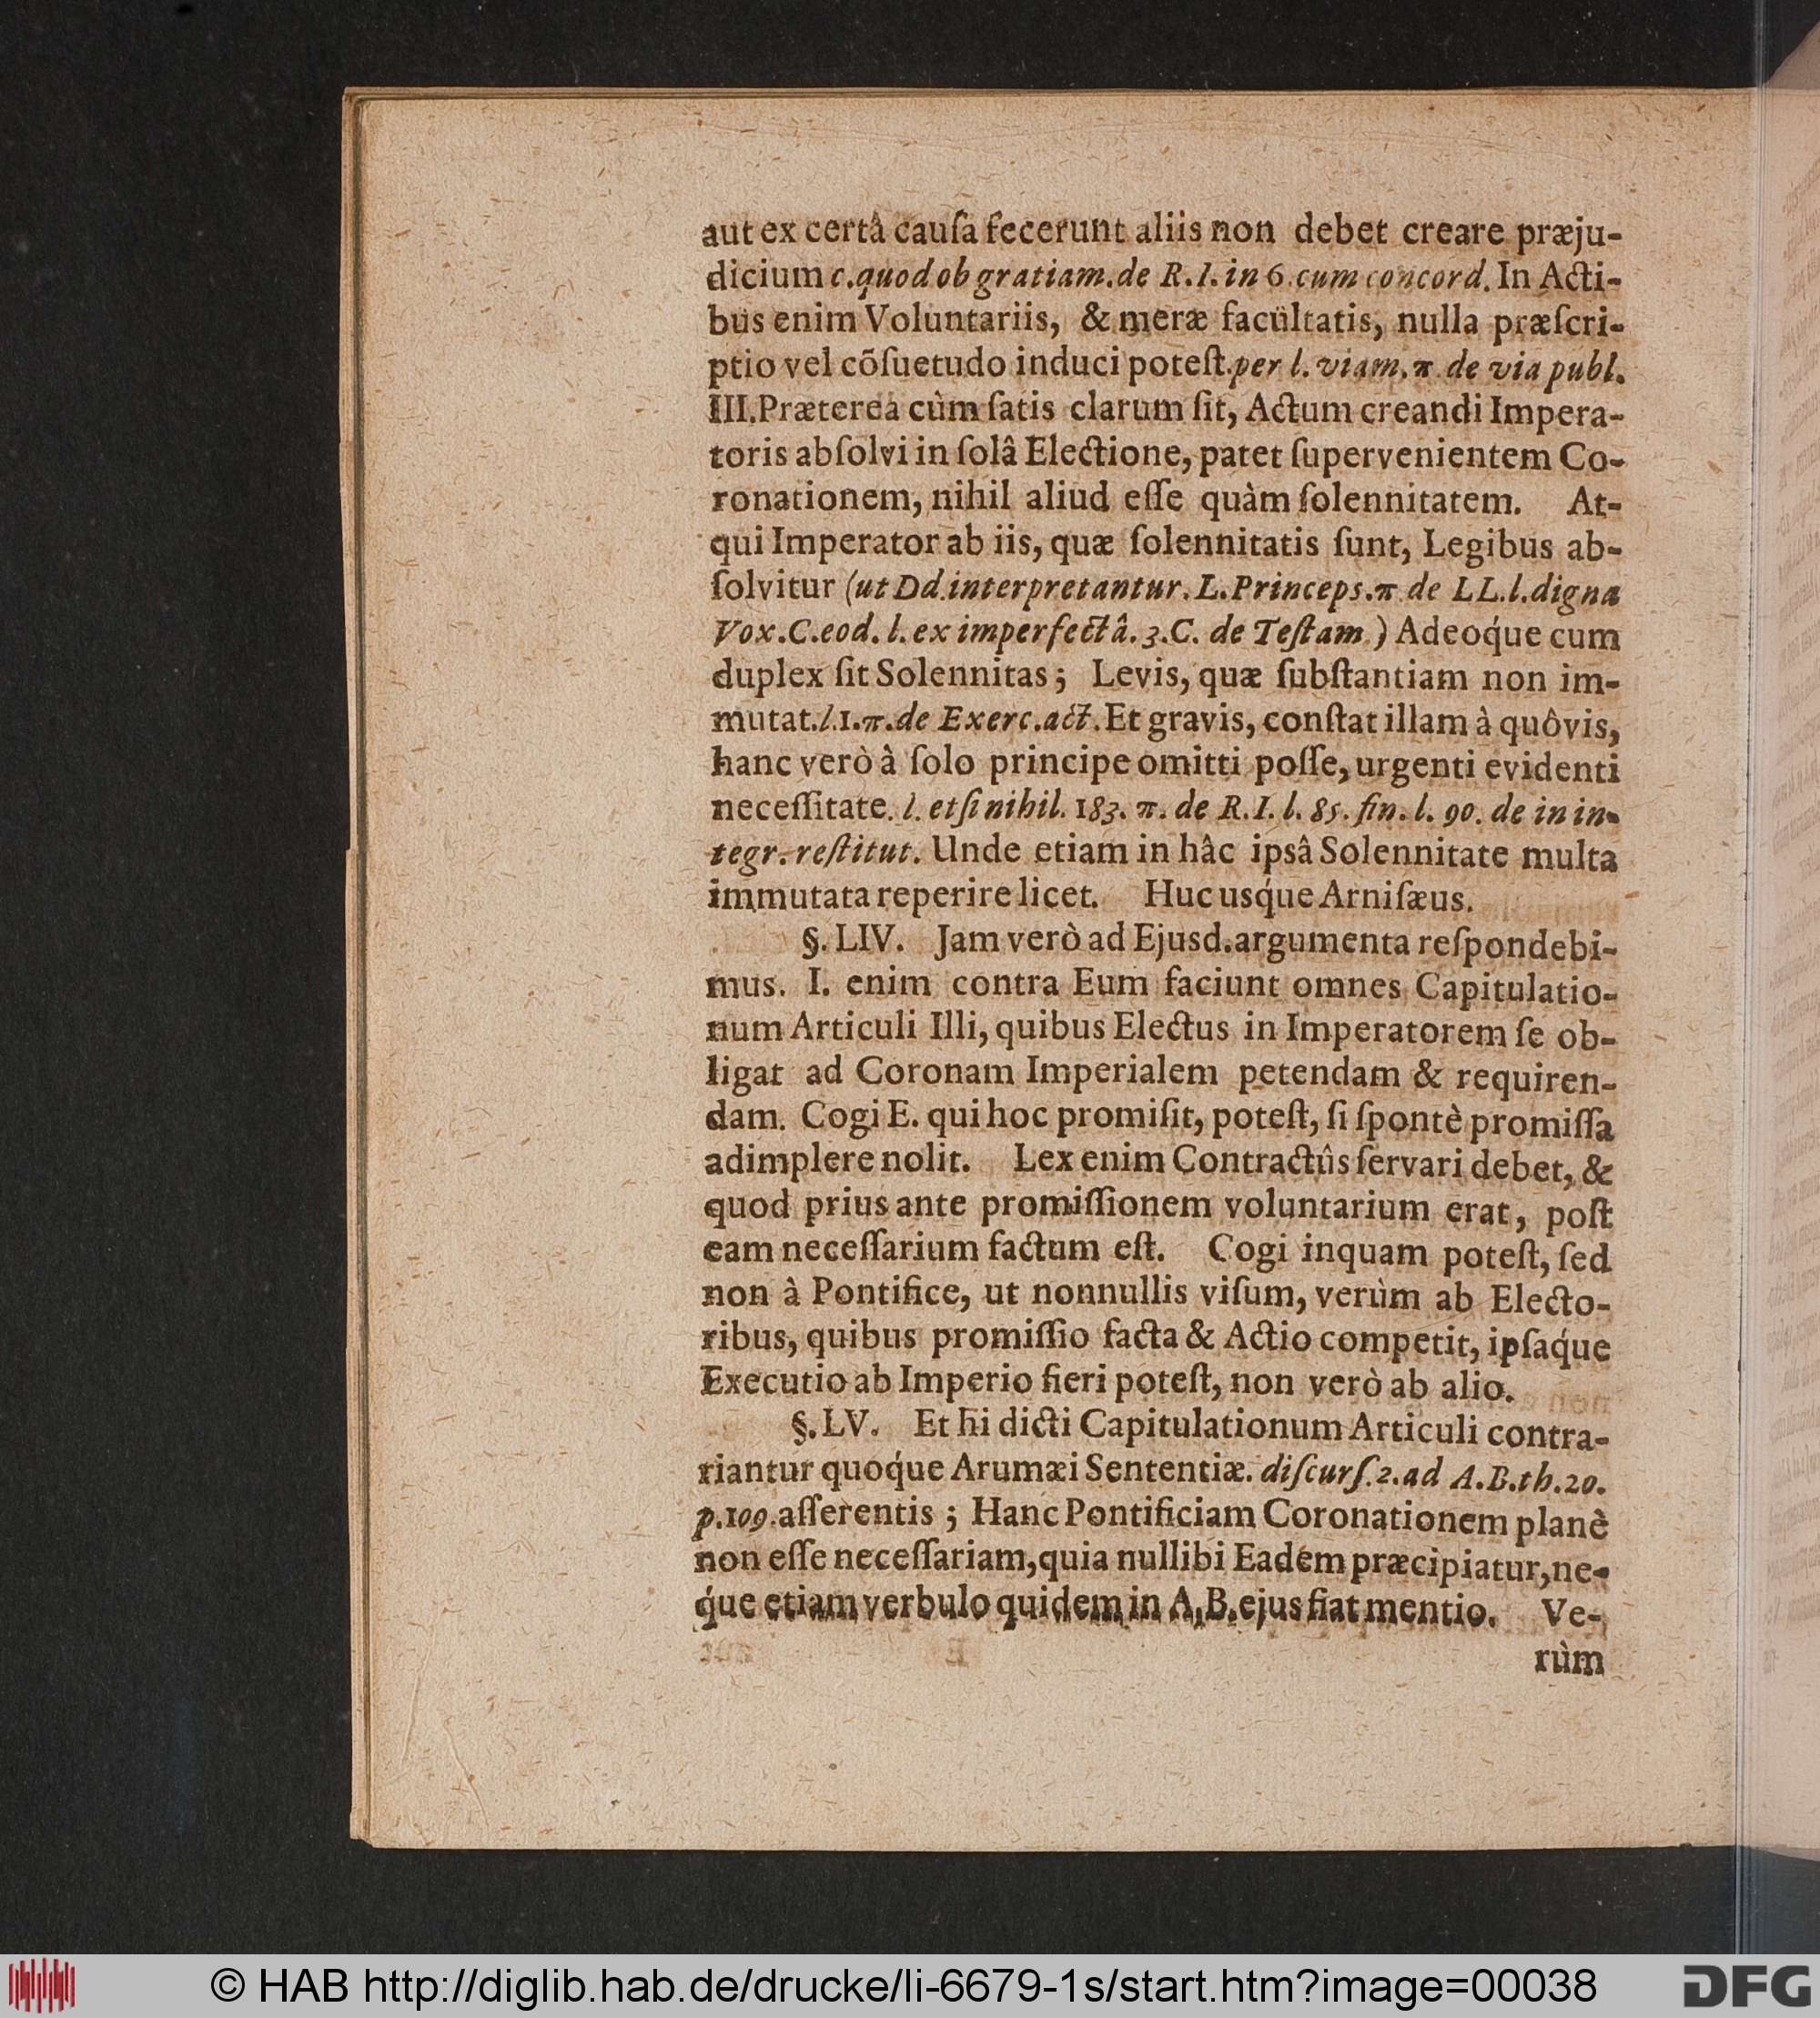 aut ex certâ cauſa fecerunt aliis non debet creare præju-
dicium c. quod ob gratiam. de R. I. in 6. cum concord. In Acti-
bus enim Voluntariis, & meræ facultatis, nulla præſcri-
ptio vel cõſuetudo induci poteſt. per l. viam. π. de via publ.
III. Præterea cùm ſatis clarum ſit, Actum creandi Impera-
toris abſolvi in ſolâ Electione, patet ſupervenientem Co-
ronationem, nihil aliud eſſe quàm ſolennitatem. At-
qui Imperator ab iis, quæ ſolennitatis ſunt, Legibus ab-
ſolvitur (ut Dd. interpretantur. L. Princeps. π. de LL. l. digna
Vox. C. eod. l. ex imperfectâ. 3. C. de Teſtam.) Adeoq́ue cum
duplex ſit Solennitas; Levis, quæ ſubſtantiam non im-
mutat. l. 1. π. de Exerc. act. Et gravis, conſtat illam à quôvis,
hanc verò à ſolo principe omitti poſſe, urgenti evidenti
neceſſitate. l. etſi nihil. 183. π. de R. I. l. 85. fin. l. 90. de in in-
tegr. reſtitut. Unde etiam in hâc ipsâ Solennitate multa
immutata reperire licet. Huc usq́ue Arniſæus.
§. LIV. Jam verò ad Ejusd. argumenta reſpondebi-
mus. I. enim contra Eum faciunt omnes Capitulatio-
num Articuli Illi, quibus Electus in Imperatorem ſe ob-
ligat ad Coronam Imperialem petendam & requiren-
dam. Cogi E. qui hoc promiſit, poteſt, ſi ſpontè promiſſa
adimplere nolit. Lex enim Contractûs ſervari debet, &
quod prius ante promiſſionem voluntarium erat, poſt
eam neceſſarium factum eſt. Cogi inquam poteſt, ſed
non à Pontifice, ut nonnullis viſum, verùm ab Electo-
ribus, quibus promiſſio facta & Actio competit, ipſaq́ue
Executio ab Imperio fieri poteſt, non verò ab alio.
§. LV. Et hi dicti Capitulationum Articuli contra-
riantur quoq́ue Arumæi Sententiæ. diſcurſ. 2. ad A. B. th. 20.
p. 109. aſſerentis; Hanc Pontificiam Coronationem planè
non eſſe neceſſariam, quia nullibi Eadem præcipiatur, ne-
q́ue etiam verbulo quidem in A. B. ejus fiat mentio. Ve-
rùm
© HAB http://diglib.hab.de/drucke/li-6679-1s/start.htm?image=00038
DFG